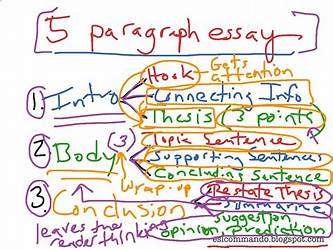 5 paragraph essay
Hook - Gets attention
1. Intro
Connecting Info
Thesis (3 points)
2. Body (3)
Topic Sentence
Supporting Sentences
Concluding Sentence
wrap-up
3. Conclusion
Restate Thesis
Summarize
suggestion,
opinion, prediction
leaves the
reader thinking
eslcommando.blogspot.com